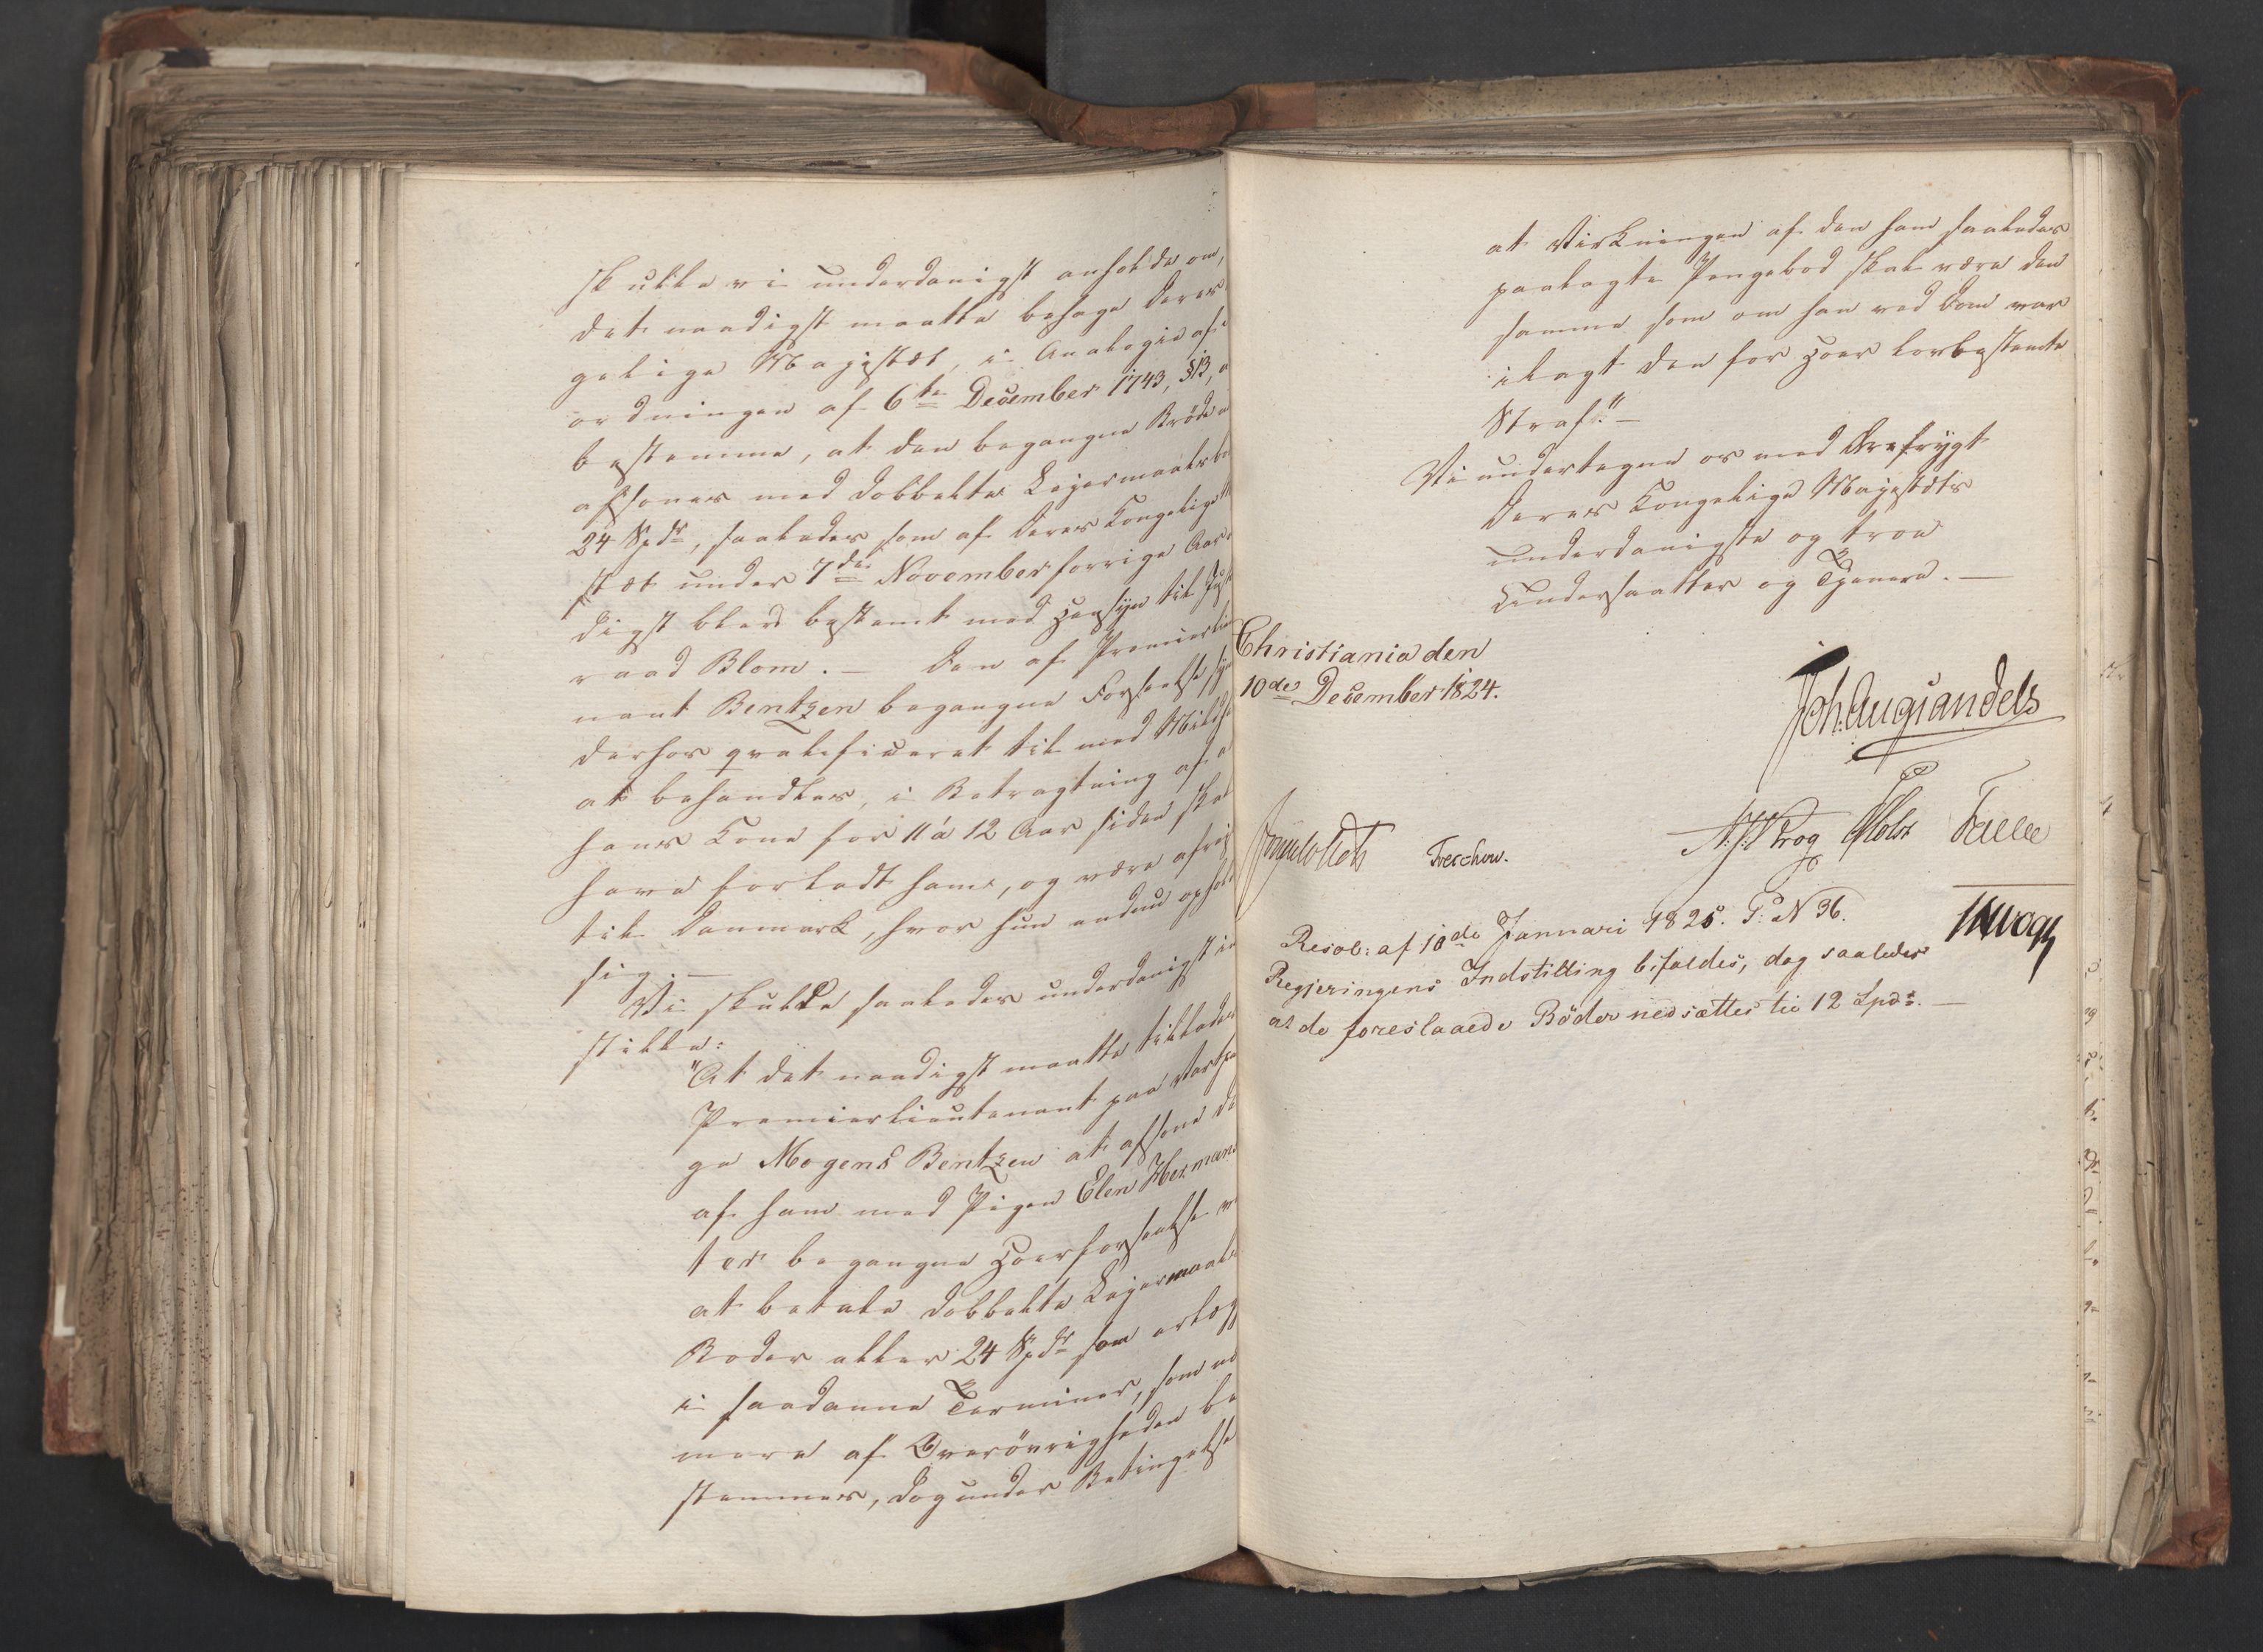 skulle vi underdanigst anholde om,
det naadigst maatte behage Deres
gelige Majestæt, i Analogie af
ordningen af 6te December 1743, §13, a
bestemme, at den begangne Bröde
afsones med dobbelte Leiermaalsbø
24 Spdr, saaledes som af Deres Kongelige
stæt under 7de November forrige Aar
digst blev bestemt med Hensyn til Just
raad Blom. — Den af Premierlieu
nant Bentzen begangne Forseelse syn
derhos qvalificeret til med Mildhe
at behandles, i Betragtning af a
hans Kone for 11 à 12 Aar siden skal
have forladt ham, og være afreist
til Danmark, hvor hun endnu ophold
sig. —
Vi skulle saaledes underdanigst in
stille:
"At det naadigst maatte tillades
Premierlieutenant paa Vart
ge Mogens Bentzen at afsone de
af ham med Pigen Elen Hermans
ter begangne Hoerforseelse ve
at betale dobbelte Leiermaals
Bøder eller 24 Spdr som erlæg
i saadanne Terminer, som næ
mere af Overövrigheden be
stemmes, dog under Betingelse
at Virkningen af den ham saaledes
paalagte Pengebod skal være den
samme som om han ved Dom var
ilagt den for Hoer lovbestemte
Straf." —
Vi undertegne os med Ærefrygt
Deres Kongelige Majestæts
underdanigste og troe
Undersaatter og Tjenere. —
Christiania den
10de December 1824.
Joh. Aug Sandels
Sommerfeldt Treschow. N. J. Krog P Holst Falsen
JH Vogt
Resol: af 10de Januari 1825. P: N 36.
Regjeringens Indstilling bifaldes, dog saaledes
at de foreslaaede Böder nedsættes til 12 Spdr. —